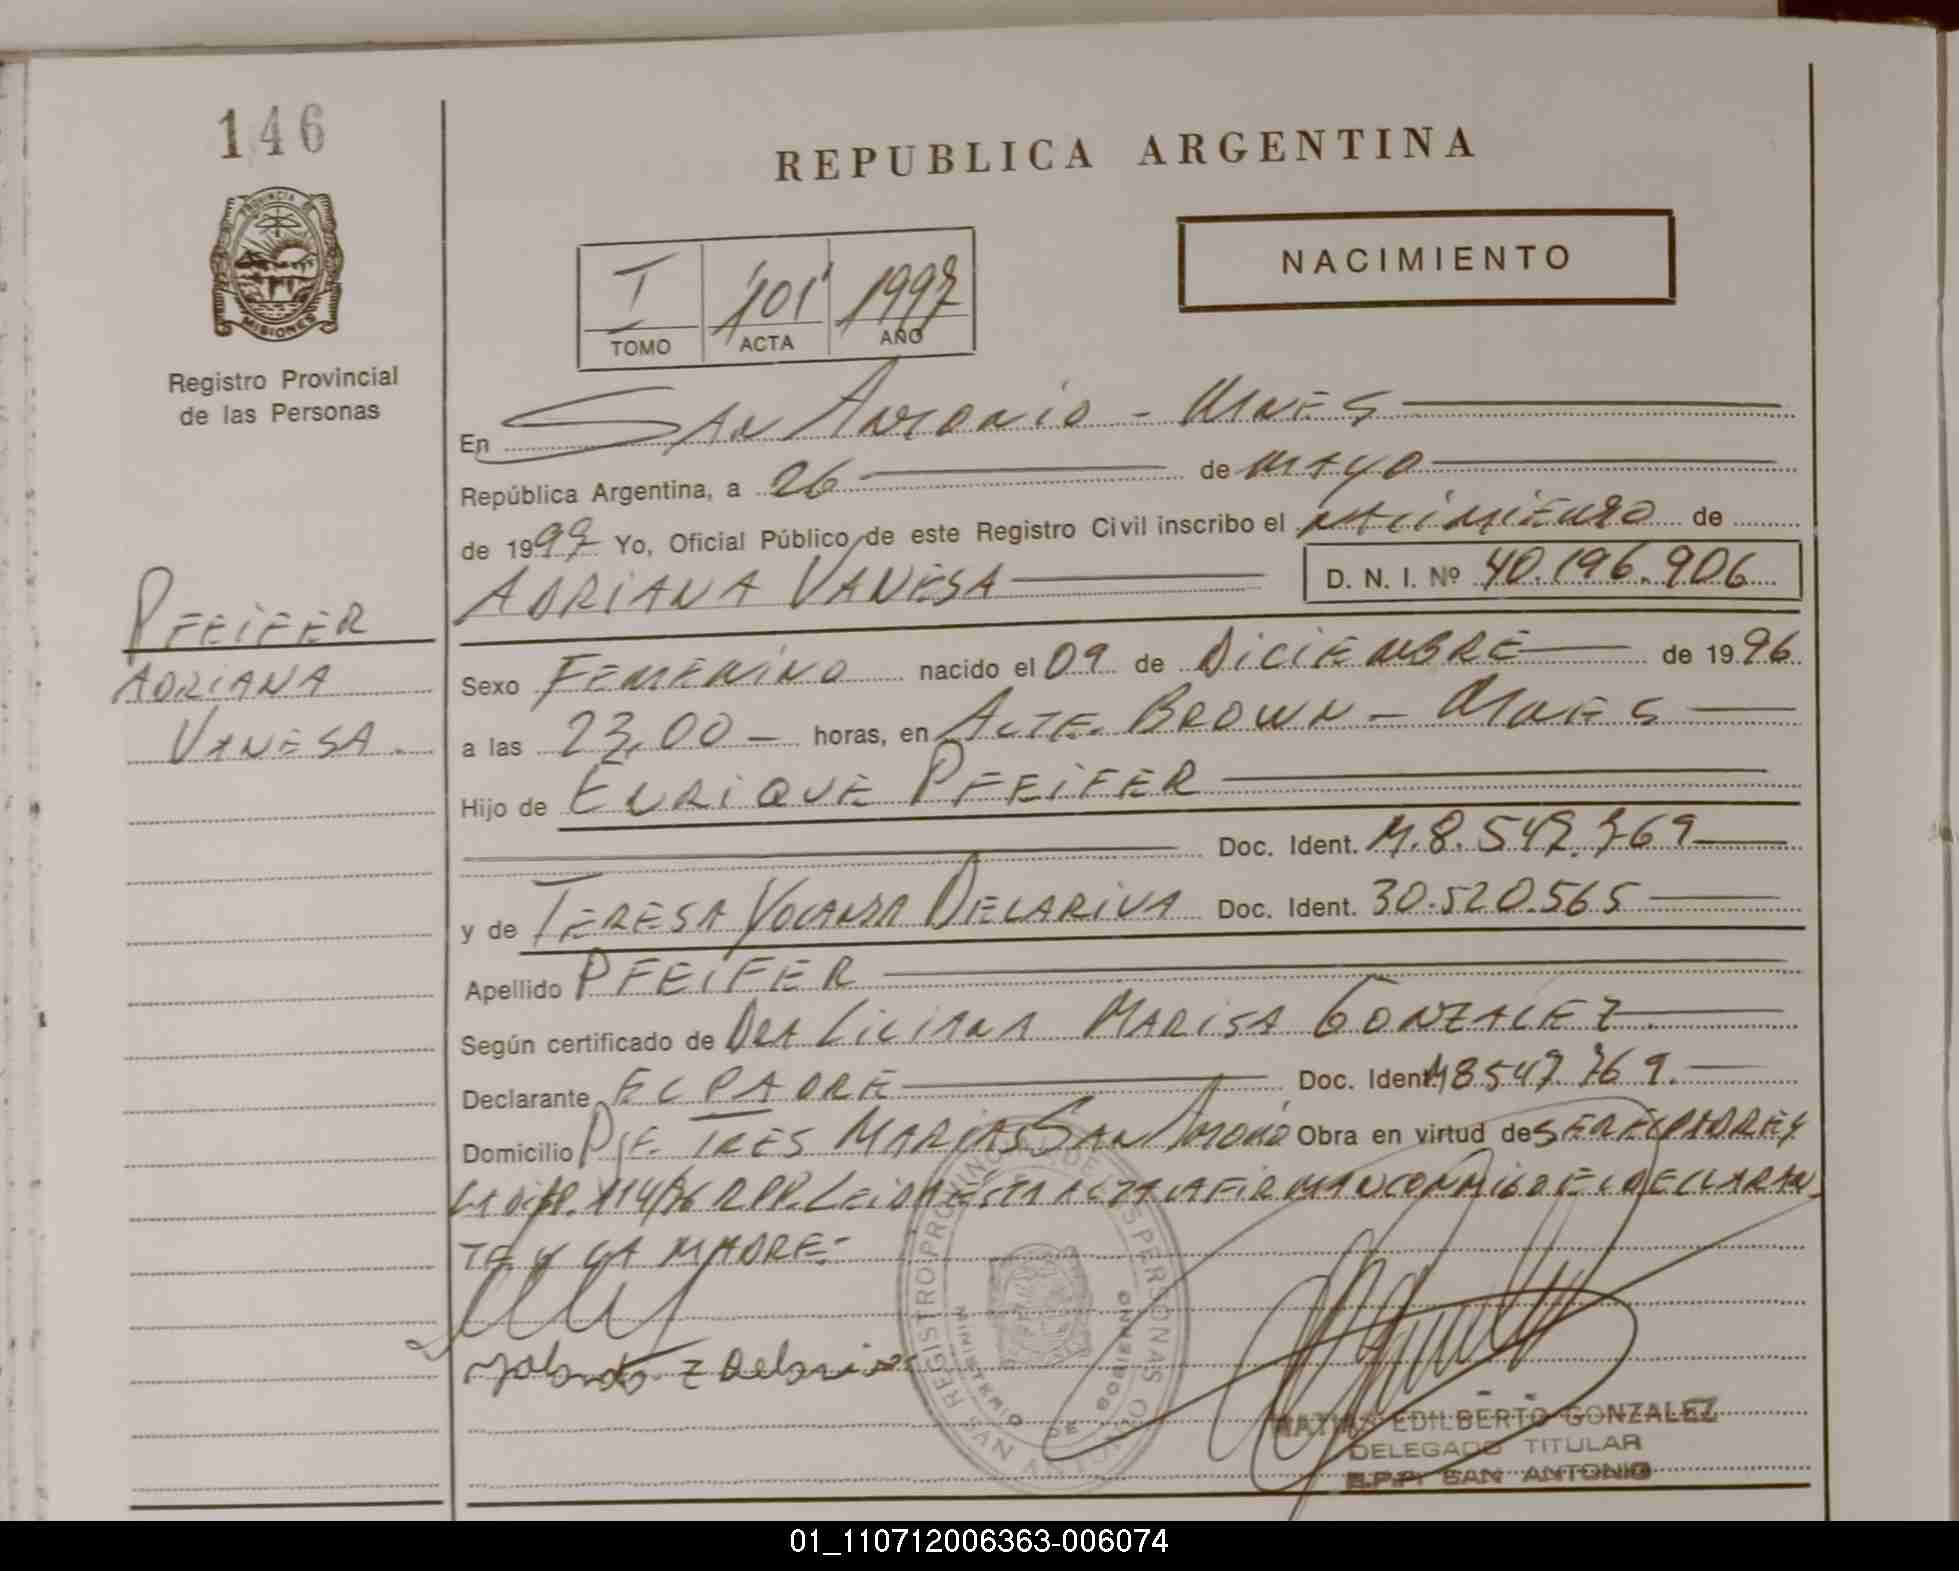 146
REPUBLICA ARGENTINA
PROVINCIA DE
MISIONES
Registro Provincial
de las Personas
NACIMIENTO
I 101 1997
TOMO ACTA AÑO
En SAN ANTONIO - MNES
República Argentina, a 26 de MAYO
de 1997 Yo, Oficial Público de este Registro Civil inscribo el NACIMIENTO de
ADRIANA VANESA D. N. I. Nº 40.196.906
PFEIFER
ADRIANA
VANESA.
Sexo FEMENINO nacido el 09 de DICIEMBRE de 1996
a las 23,00 - horas, en ALTE. BROWN - MNES
Hijo de ENRIQUE PFEIFER
Doc. Ident. M.8.547.769
y de TERESA YOLANDA DELARIVA Doc. Ident. 30.520.565
Apellido PFEIFER
Según certificado de DRA LILIANA MARISA GONZALEZ
Declarante EL PADRE Doc. Ident. M8547769.
Domicilio PJE. TRES MARIAS SAN ANTONIO Obra en virtud de SER EL PADRE Y
LA DISP. 114/96 RPP. LEIDA ESTA ACTA LA FIRMAN CONMIGO EL DECLARAN
TE Y LA MADRE:-
REGISTRO PROVINCIAL DE LAS PERSONAS
MINISTERIO DE GOBIERNO
SAN ANTONIO
EDILBERTO GONZALEZ
DELEGADO TITULAR
R.P.P. SAN ANTONIO
01_110712006363-006074